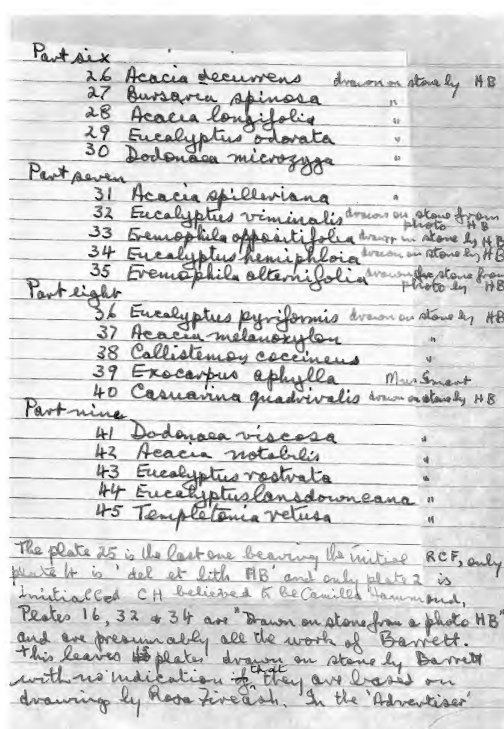 Part six
26 Acacia decurrens drawn on stone by HB
27 Bursaria spinosa "
28 Acacia longifolia "
29 Eucalyptus odorata "
30 Dodonaea microzyga "
Part seven
31 Acacia spilleriana "
32 Eucalyptus viminalis drawn on stone from photo HB
33 Eremophila oppositifolia drawn on stone by HB
34 Eucalyptus hemiphloia drawn on stone by HB
35 Eremophila alternifolia drawn on stone from photo by HB
Part eight
36 Eucalyptus pyriformis drawn on stone by HB
37 Acacia melanoxylon "
38 Callistemon coccineus "
39 Exocarpus aphylla Mrs Smart
40 Casuarina quadrivalis drawn on stone by HB
Part nine
41 Dodonaea viscosa "
42 Acacia notabilis "
43 Eucalyptus rostrata "
44 Eucalyptus lansdowneana "
45 Templetonia retusa "
The plate 25 is the last one bearing the initial RCF, only
plate 4 is 'del et lith HB' and only plate 2 is
initialled CH believed to be Camilla Hammond,
Plates 16, 32 & 34 are "Drawn on stone from a photo HB"
and are presumably all the work of Barrett.
This leaves plates drawn on stone by Barrett
with no indication that they are based on
drawing by Rosa Fiveash. In the 'Advertiser'